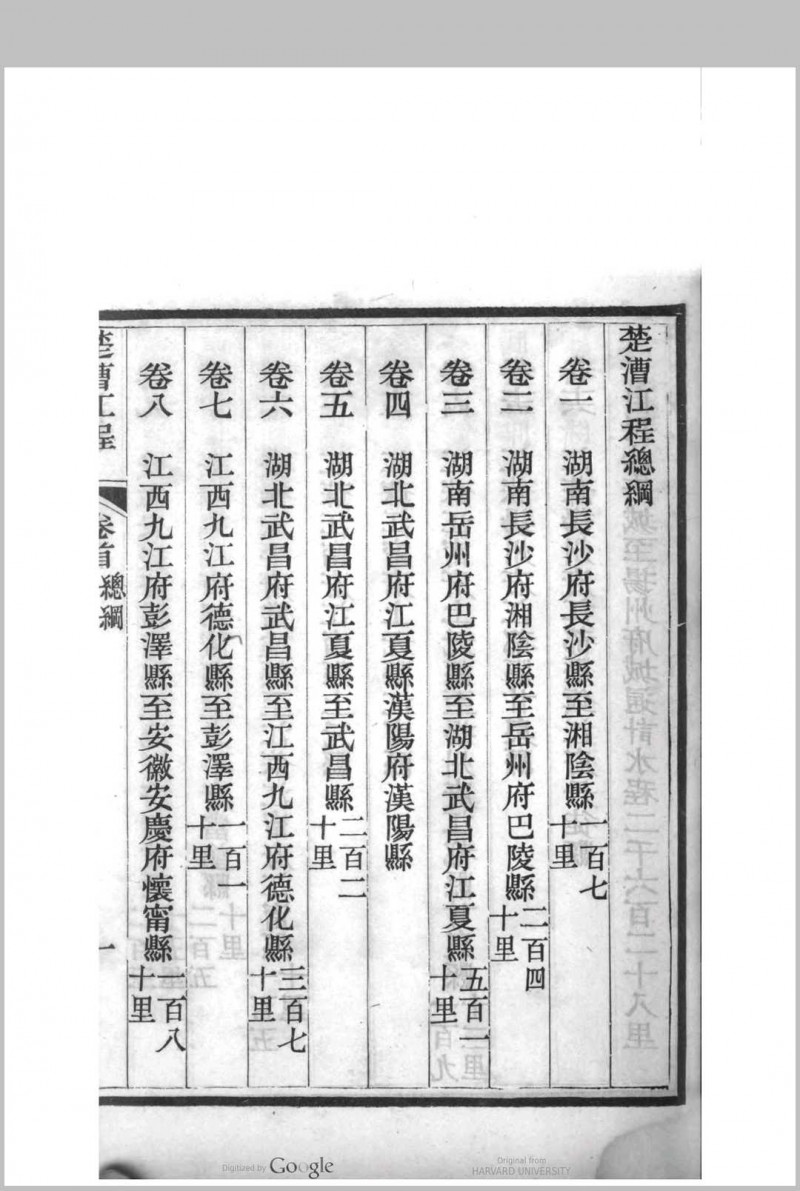 楚漕江程總綱
卷一　湖南長沙府長沙縣至湘陰縣一百七十里
卷二　湖南長沙府湘陰縣至岳州府巴陵縣二百四十里
卷三　湖南岳州府巴陵縣至湖北武昌府江夏縣五百一十里
卷四　湖北武昌府江夏縣漢陽府漢陽縣
卷五　湖北武昌府江夏縣至武昌縣二百二十里
卷六　湖北武昌府武昌縣至江西九江府德化縣三百七十里
卷七　江西九江府德化縣至彭澤縣一百一十里
卷八　江西九江府彭澤縣至安徽安慶府懷甯縣一百八十里
楚漕江程　卷首　總綱　一
Digitized by Google
Original from
HARVARD UNIVERSITY